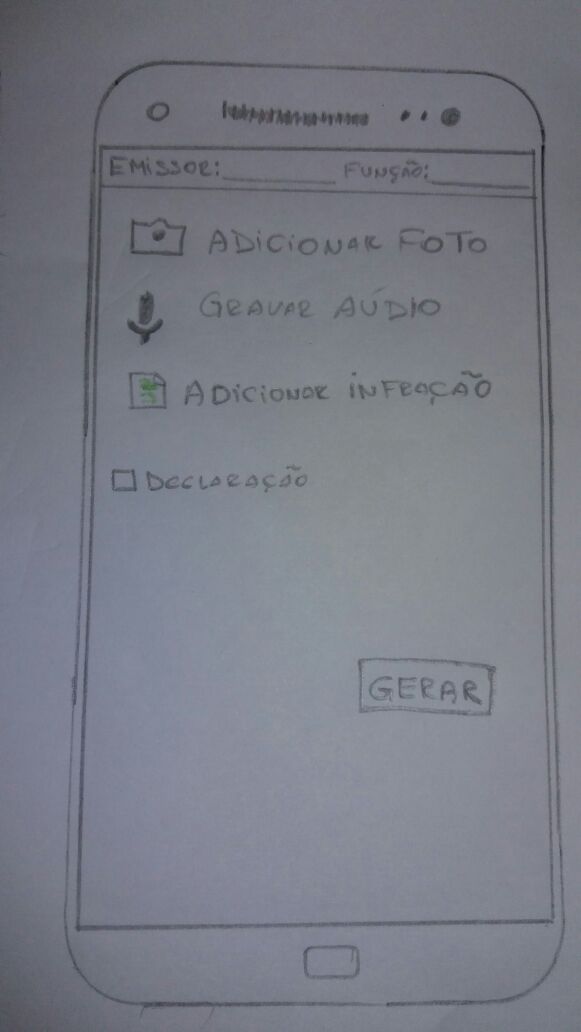 EMISSOR:__________ FUNÇÃO:__________
ADICIONAR FOTO
GRAVAR AÚDIO
ADICIONAR INFRAÇÃO
DECLARAÇÃO
GERAR